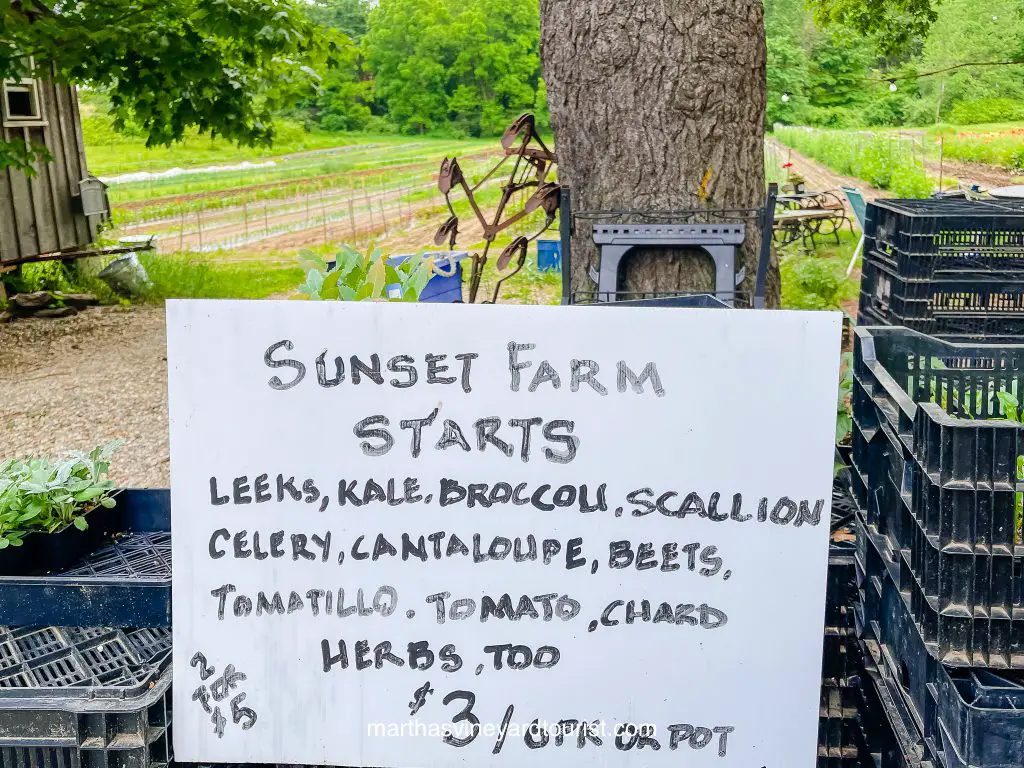 SUNSET FARM
STARTS
LEEKS, KALE, BROCCOLI, SCALLION
CELERY, CANTALOUPE, BEETS,
TOMATILLO. TOMATO, CHARD
HERBS, TOO
2 FOR $5
$3/6PK OR POT
marthasvineyardtourist.com